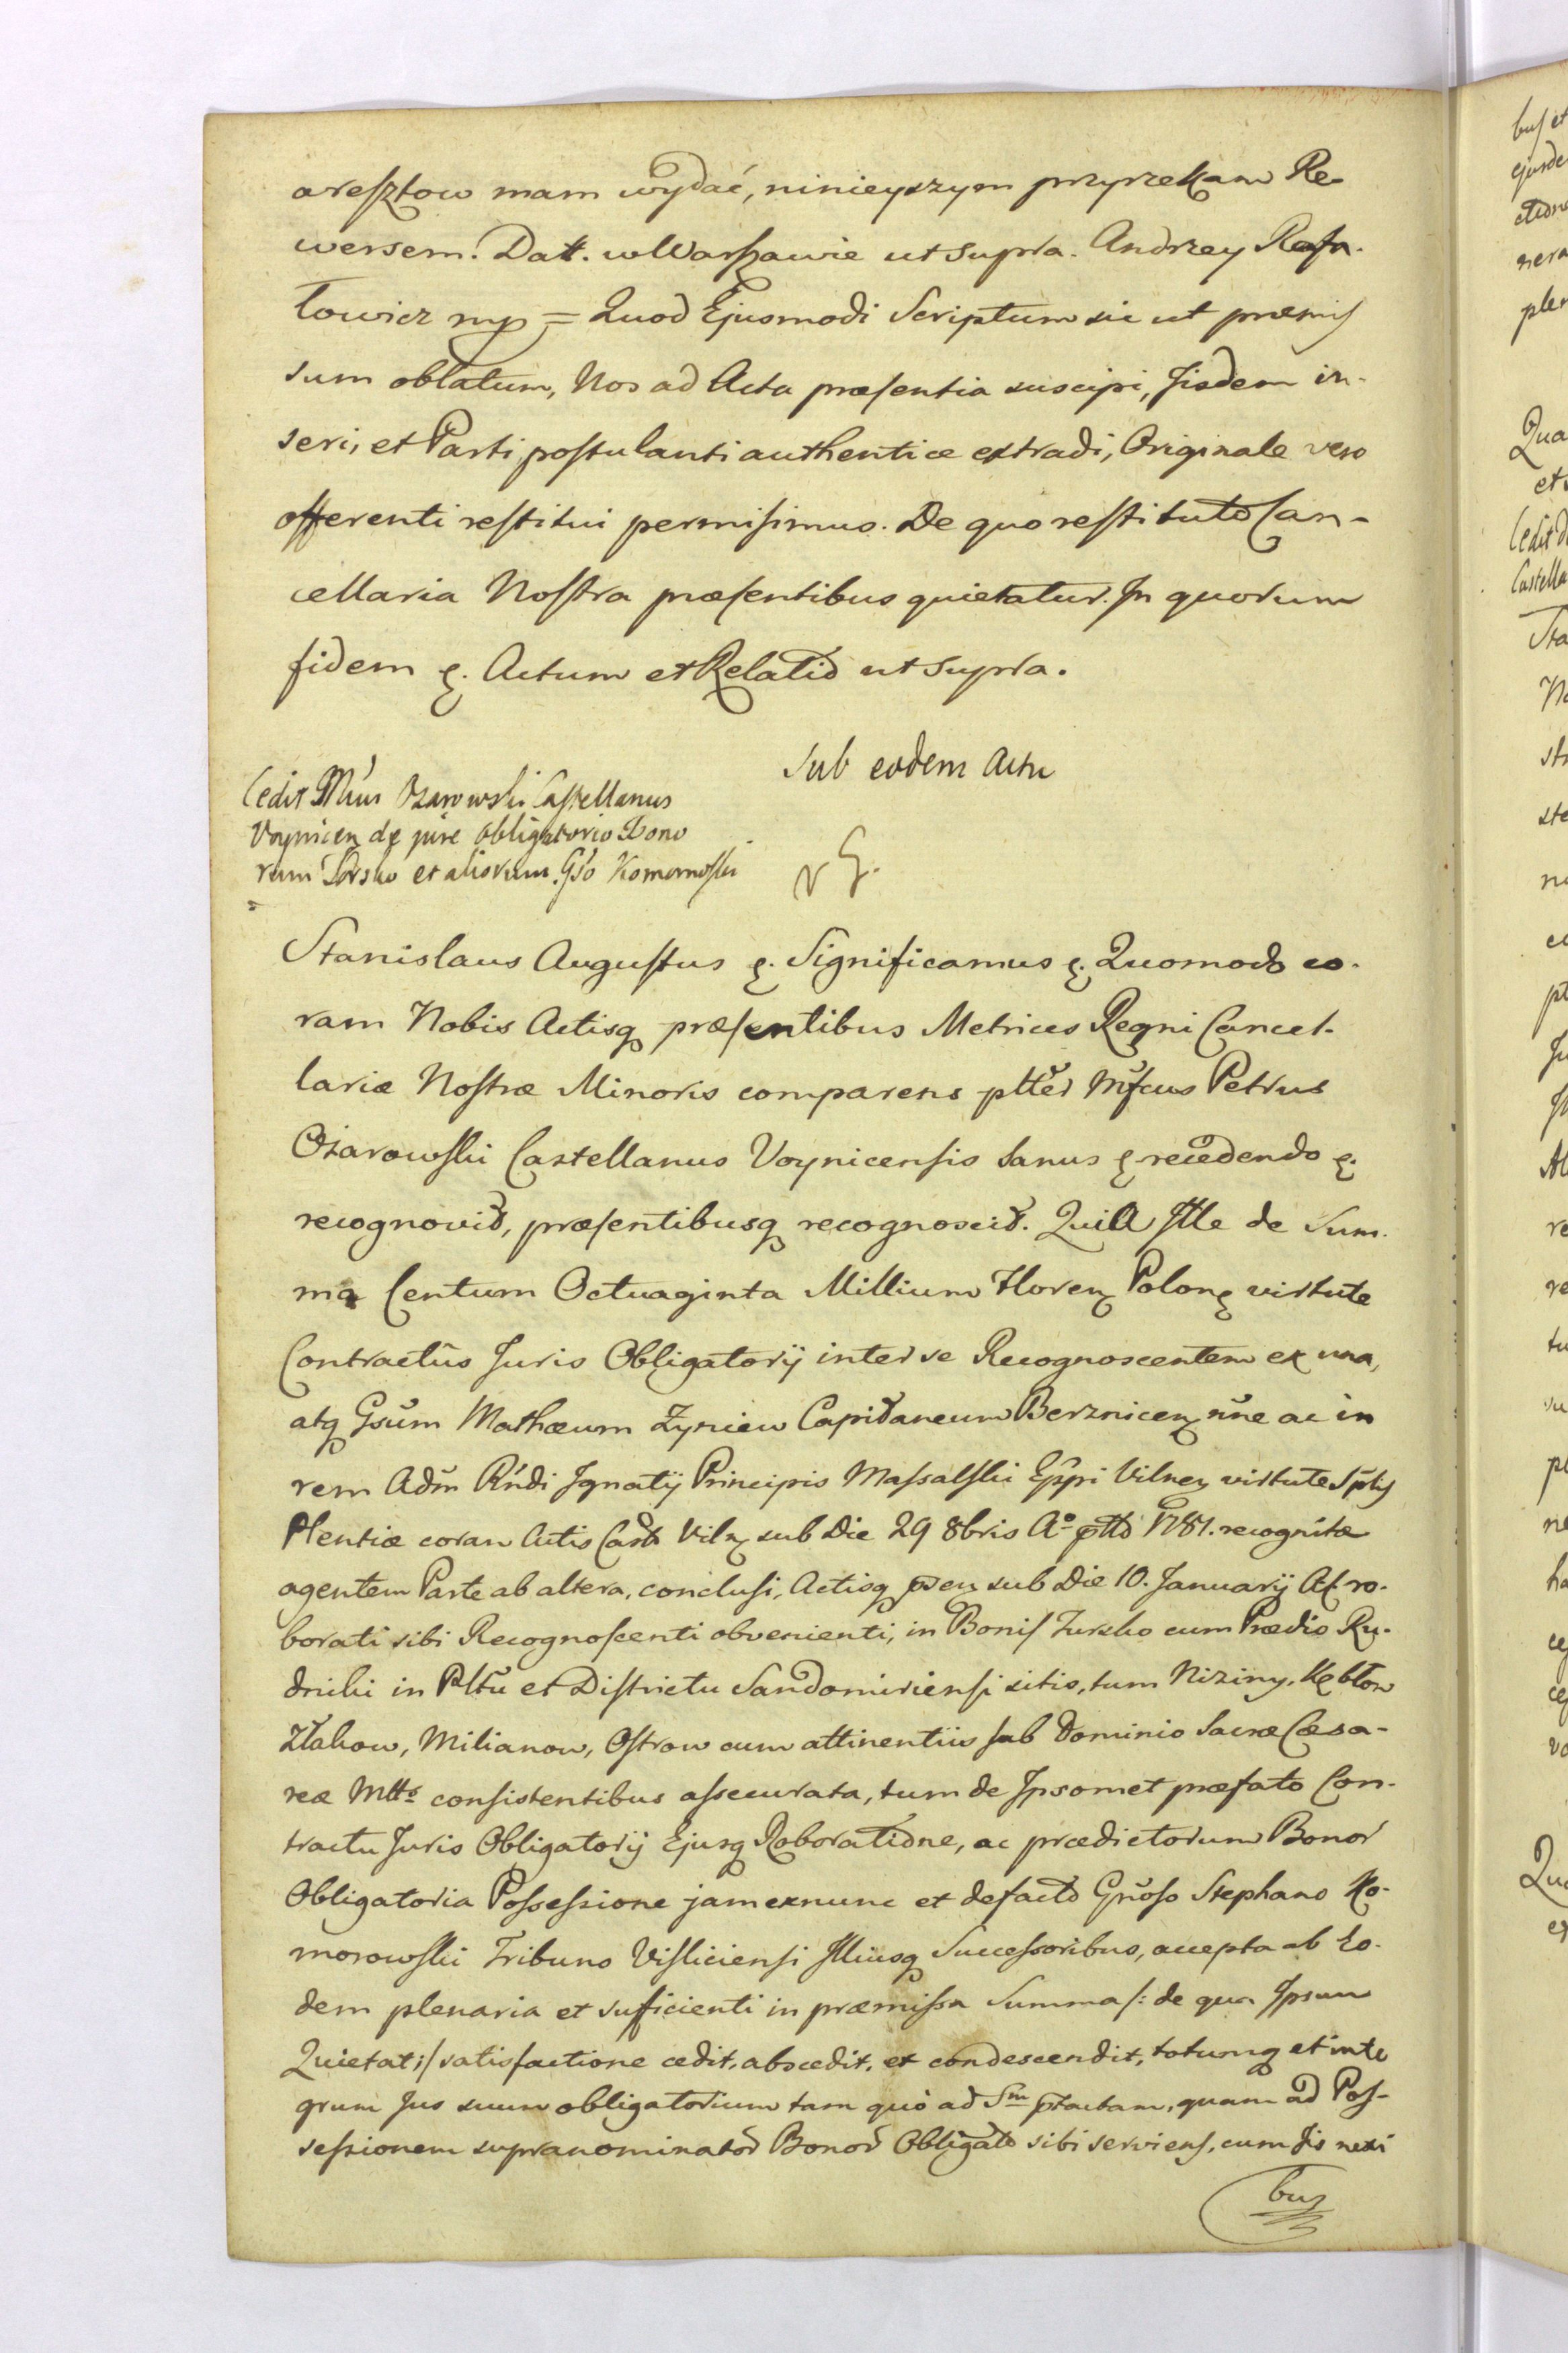 aresztow mam wydać, ninieyszym przyrzekam Re-
wersem. Datt. w Warszawie ut supra. Andrzey Rafa-
łowicz mp = Quod Ejusmodi Scriptum sic ut præmis
sum oblatum, Nos ad Acta præsentia suscipi, Jisdem in-
seri, et Parti postulanti authentice extradi, Originale vero
offerenti restitui permisimus. De quo restituto Can-
cellaria Nostra præsentibus quietatur. In quorum
fidem &. Actum et Relatio ut supra.
Sub eodem Actu
Cedit Mcus Ożarowski Castellanus
Voynicen de jure obligatorio Bono
rum Tursko et aliorum. Gso Komorowski
Stanislaus Augustus &. Significamus &. Quomodo co-
ram Nobis Actisq præsentibus Metrices Regni Cancel-
lariæ Nostræ Minoris comparens pltter Mfcus Petrus
Ożarowski Castellanus Voynicensis sanus & recedendo &.
recognovit, præsentibusq recognoscit. Quia Ille de Sum-
ma Centum Octuaginta Millium Floren Polon virtute
Contractus Juris Obligatorij inter se Recognoscentem ex una,
atq Gsum Mathæum Zyniew Capitaneum Berznicen nne ac in
rem Adm Rndi Ignatij Principis Massalski Eppi Vilnen virtute Splis
Plentiæ coram Actis Castr Viln sub Die 29 8bris Ao ptto 1781. recognitæ
agentem Parte ab altera, conclusi, Actisq psen sub Die 10. Januarij Af. ro-
borati sibi Recognoscenti obvenienti, in Bonis Tursko cum Prædio Ru-
dniki in Pltu et Districtu Sandomiriensi sitis, tum Niziny, Kębłow
Złakow, Milianow, Ostrow cum attinentiis sub Dominio Sacræ Cæsa-
reæ Mtts consistentibus assecurata, tum de Ipsomet præfato Con-
tractu Juris Obligatorij Ejusq Roboratione, ac prædictorum Bonor
Obligatoria Possessione jam ex nunc et de facto Gnoso Stephano Ko-
morowski Tribuno Visliciensi Illiusq Successoribus, accepta ab Eo-
dem plenaria et sufficienti in præmissa Summa /: de qua Ipsum
Quietat :/ satisfactione cedit, abscedit, et condescendit, totumq et inte
grum Jus suum obligatorium tam quo ad Sm ptactam, quam ad Pos-
sessionem supranominator Bonor Obligato sibi serviens, cum Jis nexi
bus